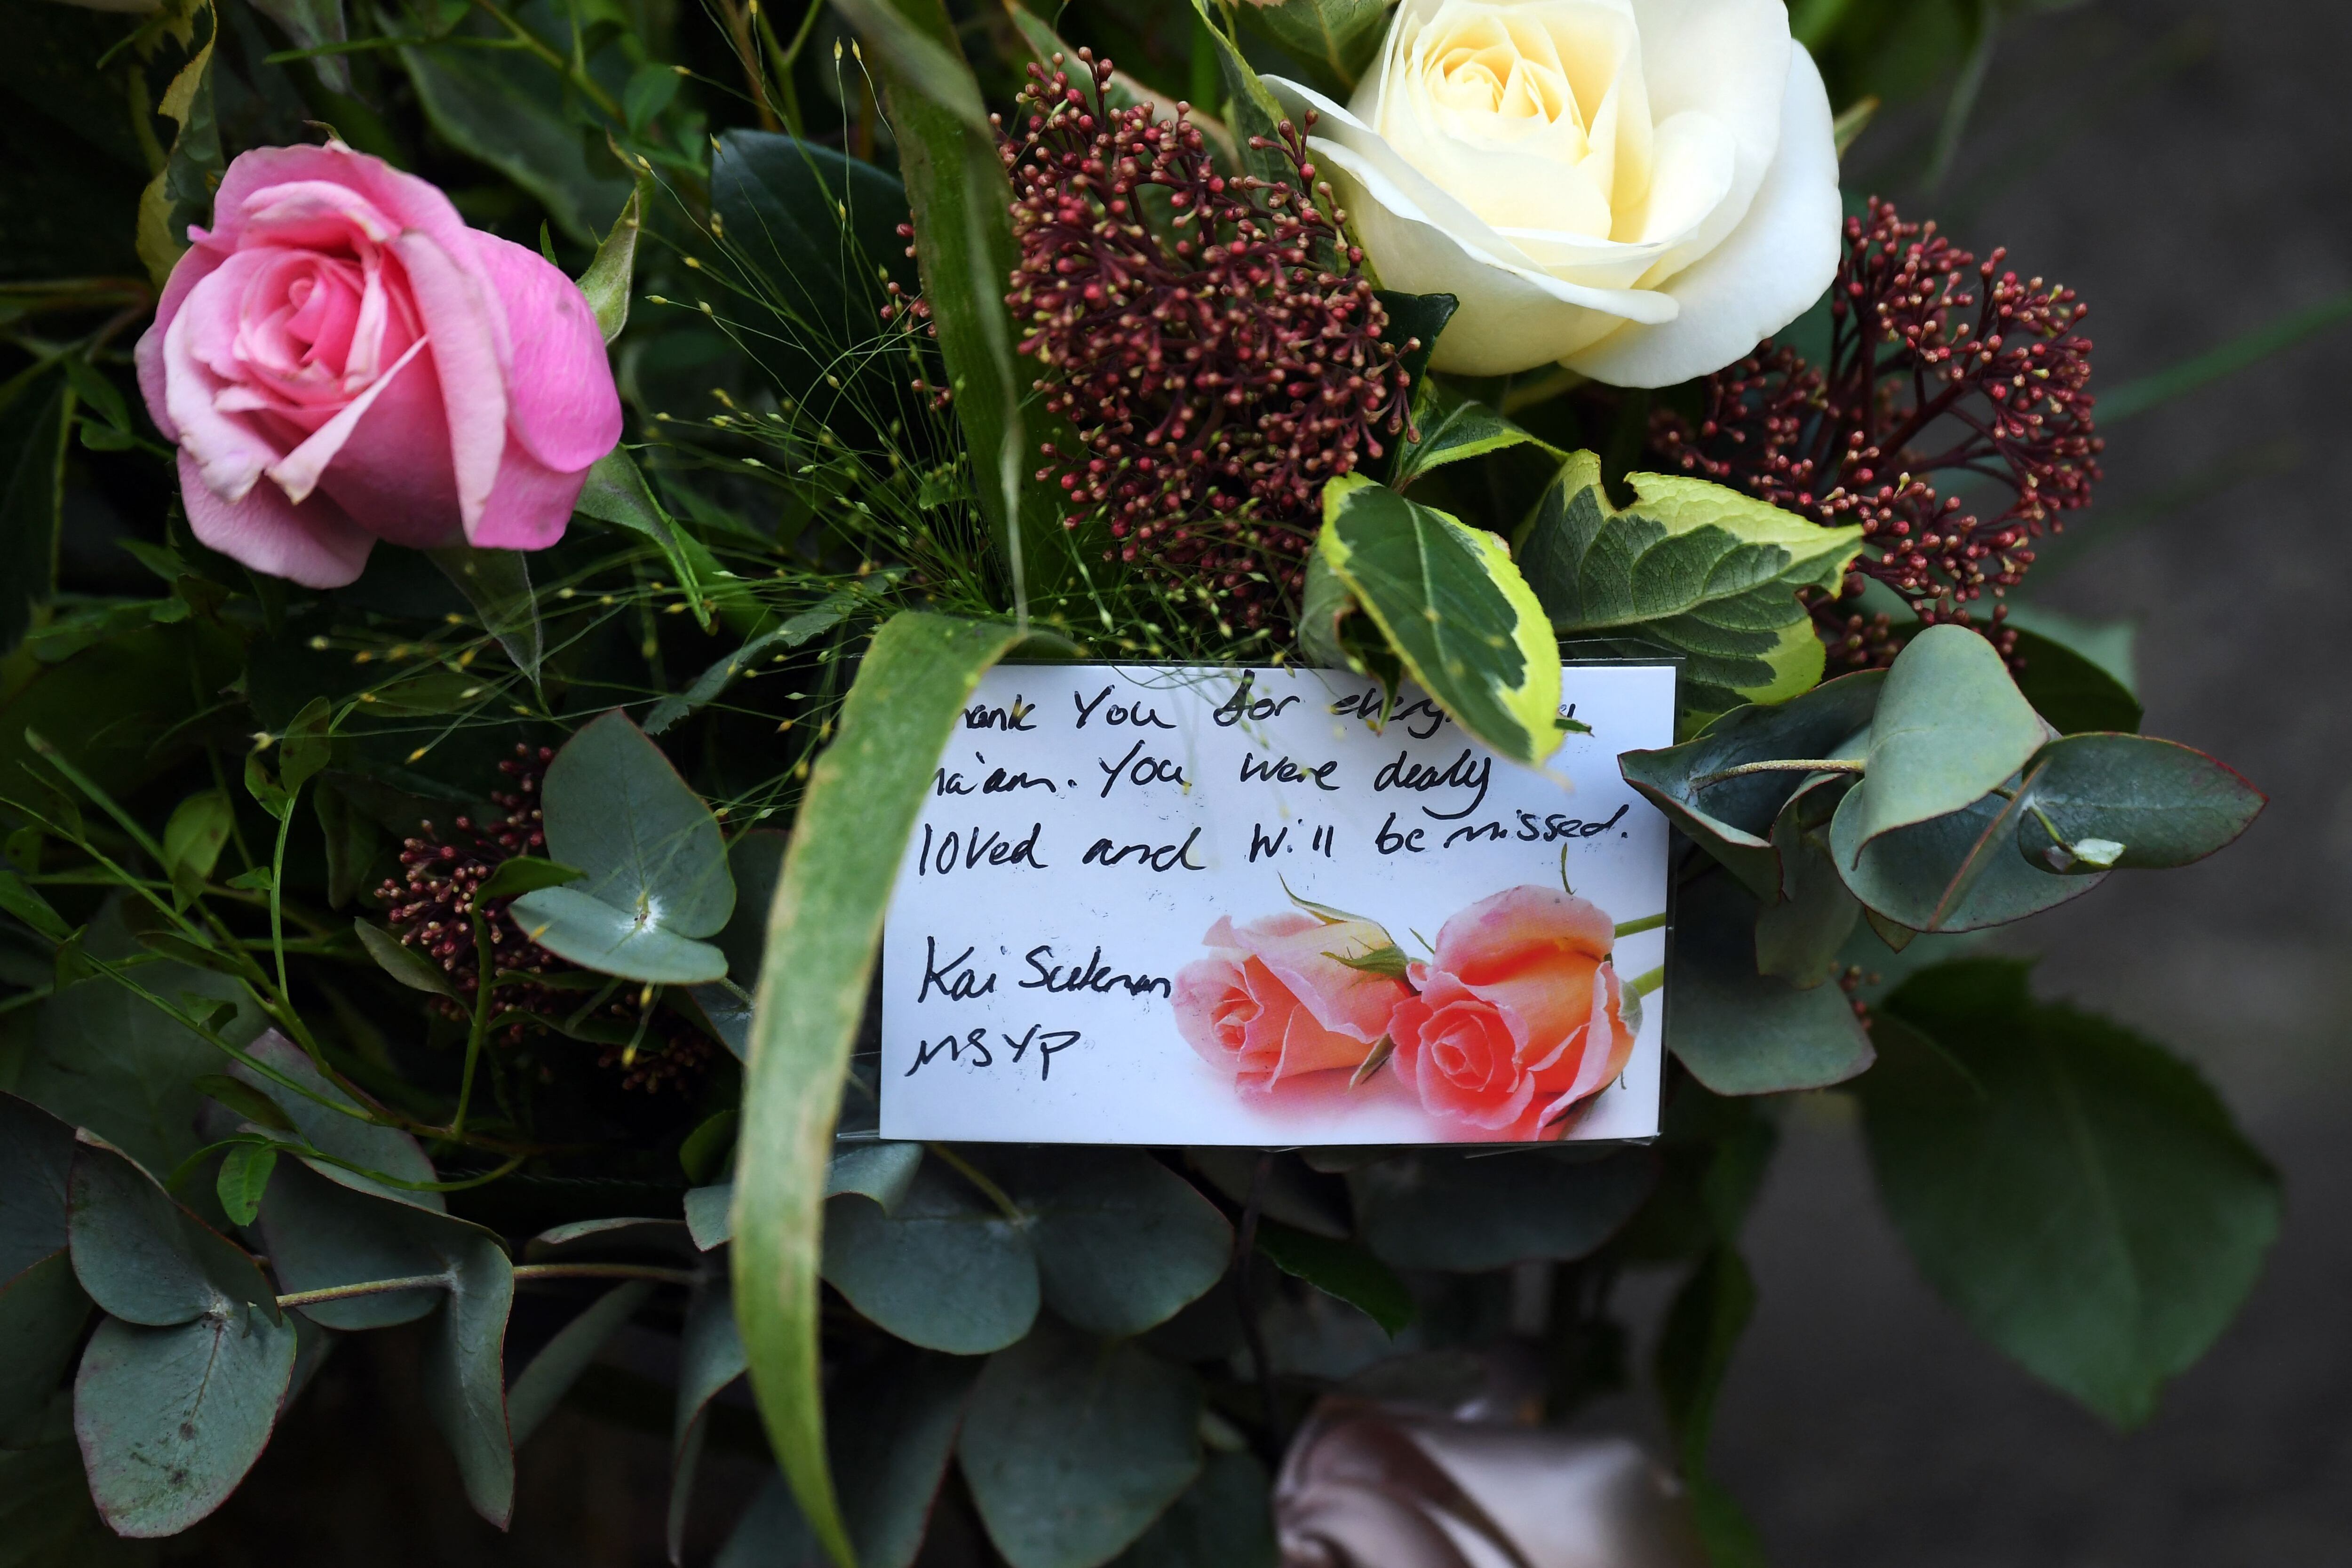 hank You for every
ma'am. You were dearly
loved and will be missed.
Kai Suleman
MSYP